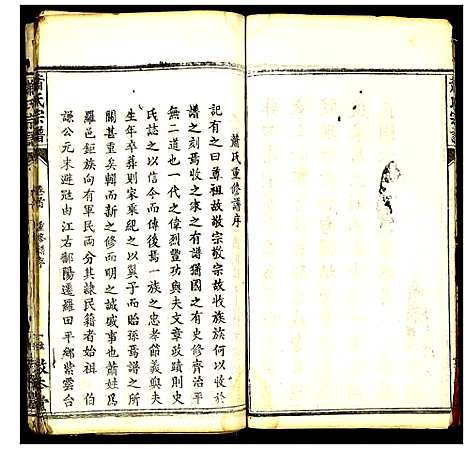 蕭氏重修譜序
記有之曰尊祖故敬宗敬宗故收族何以收於
譜之刻焉收之來之有譜猶國之有史修齊治平
無二道也一代之偉烈豐功與夫文章政蹟則史
氏誌之以信今而傳後焉一族之忠孝節義與夫
生年卒葬則家乘紀之以翼子而貽孫焉譜之所
關甚重矣輯而新之修而明之誠盛事也蕭姓為
羅邑鉅族向有軍民兩分其隸民籍者始祖伯
謙公元末避寇由江右鄱陽遷羅田平鄉紫雲台
蕭氏宗譜
卷首
重修譜序
一
蕭氏宗譜